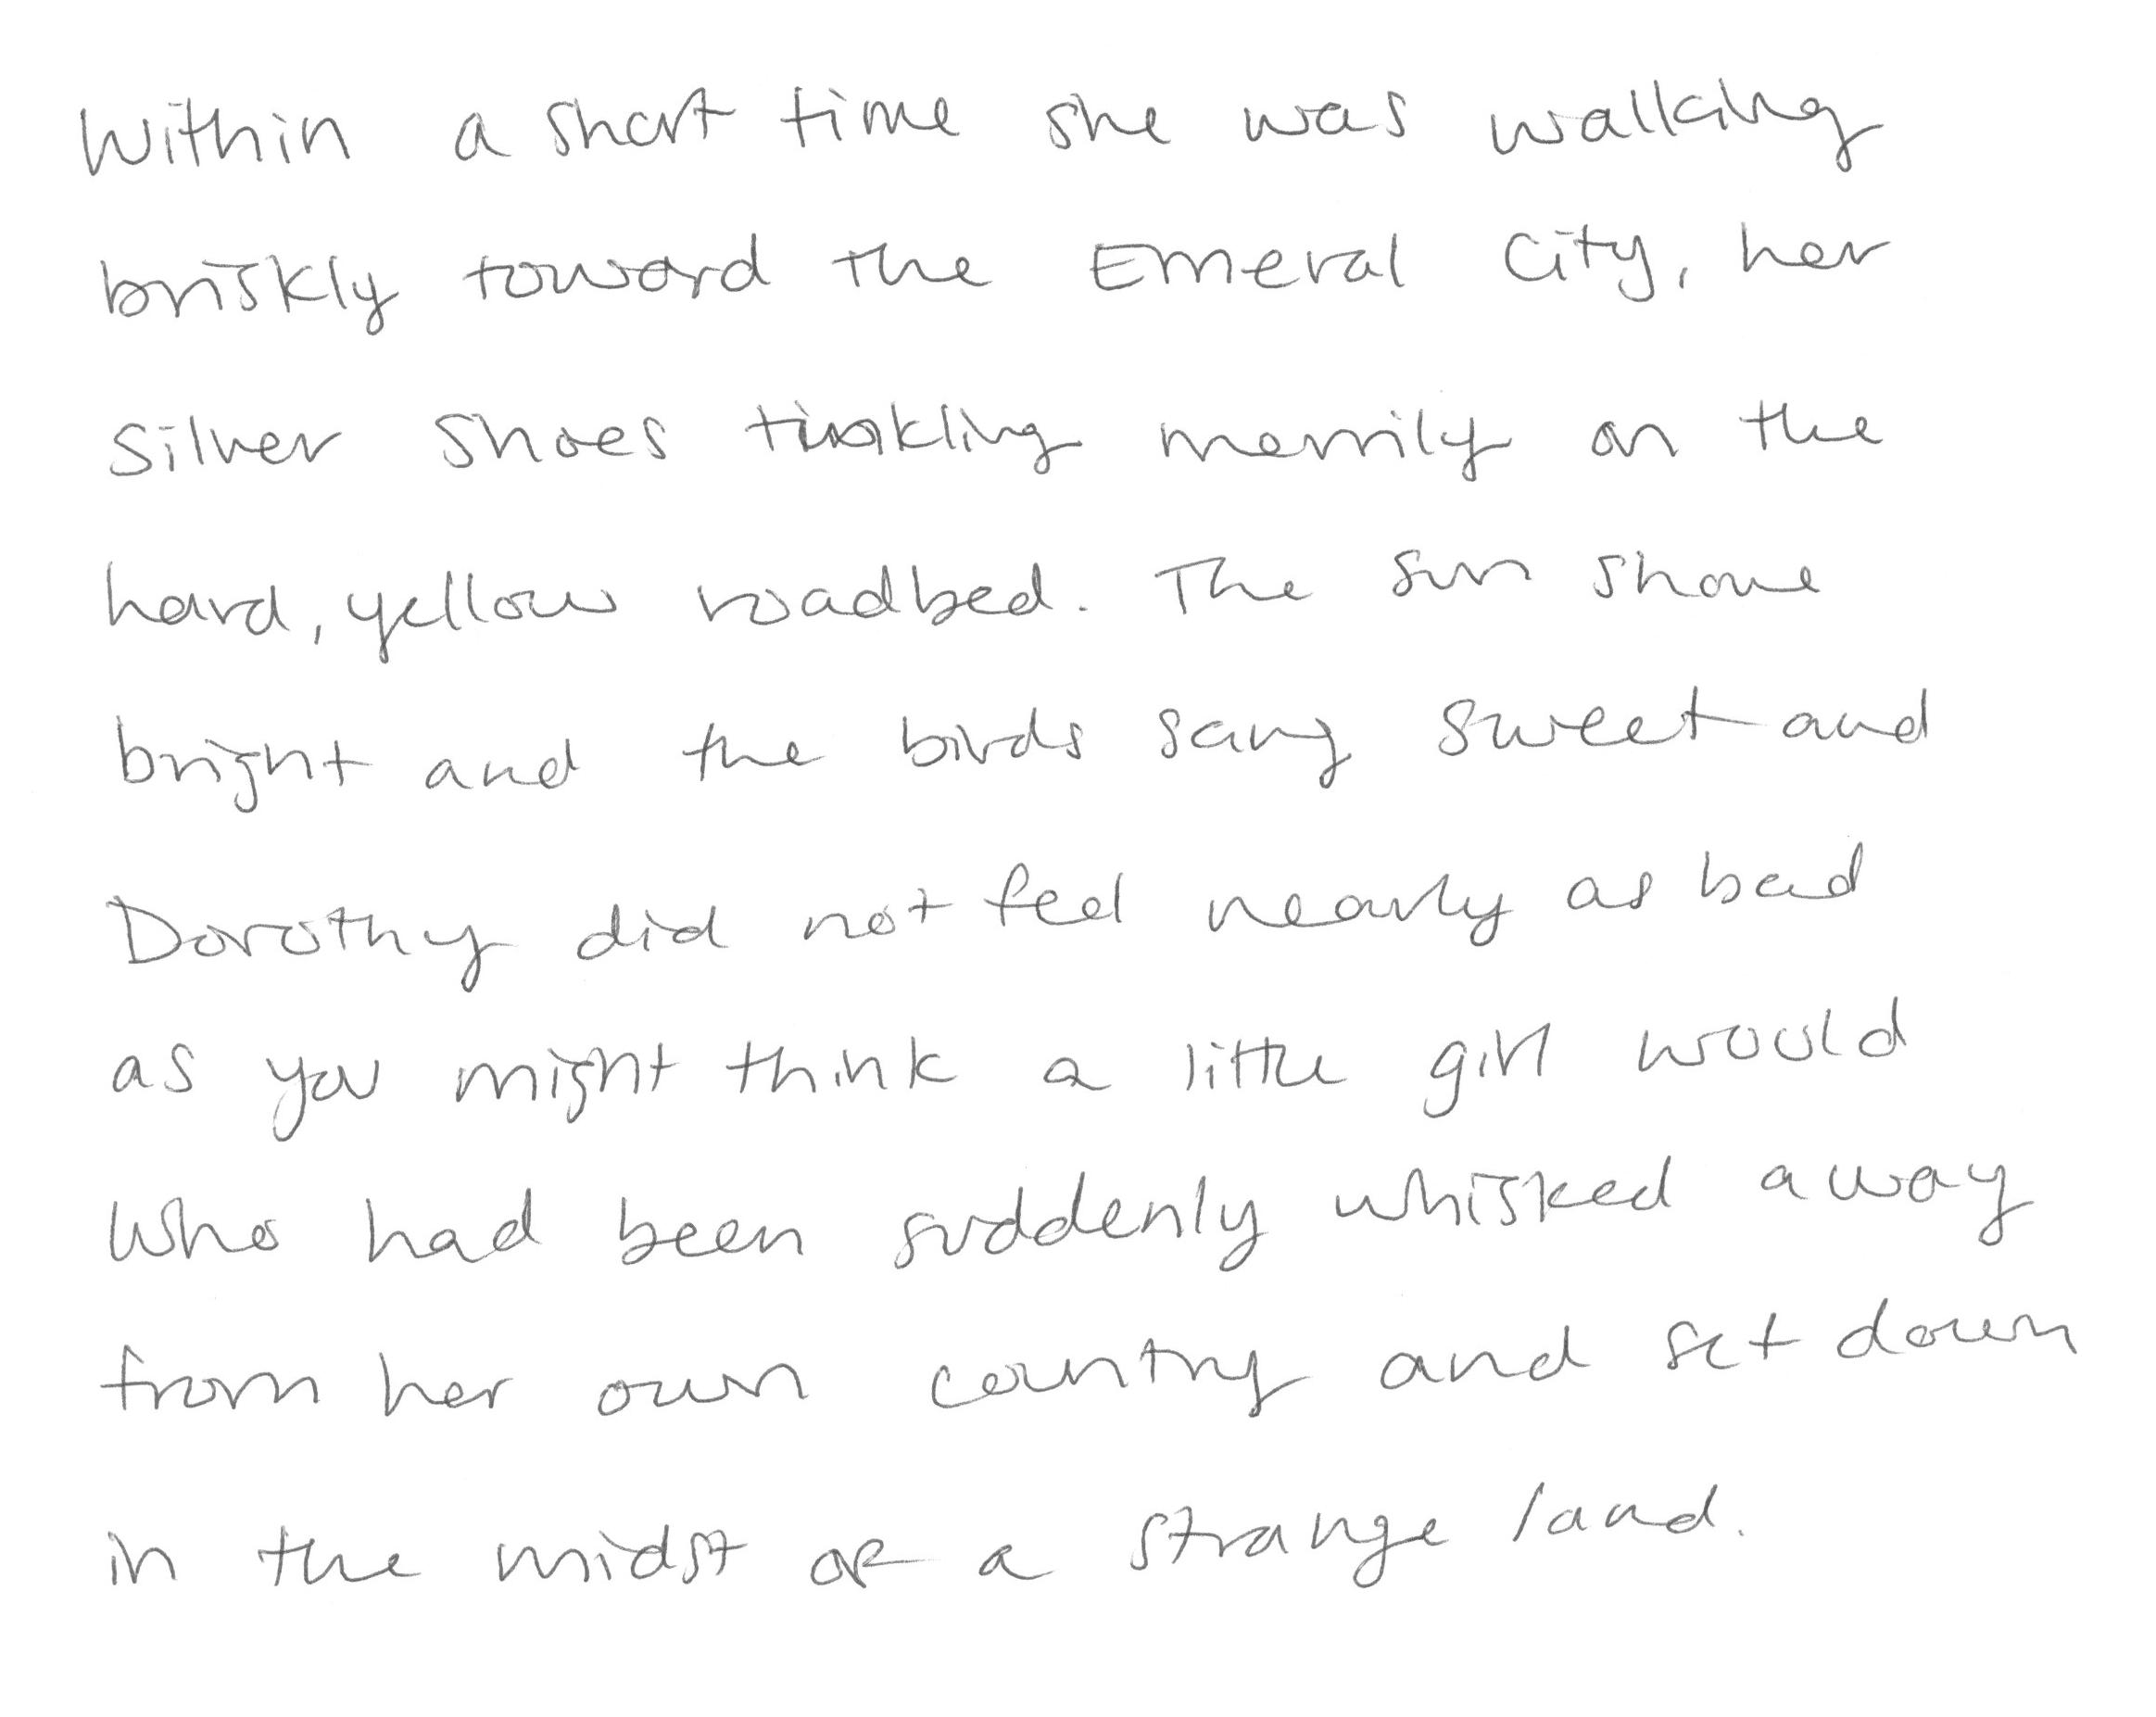 Within a short time she was walking
briskly toward the Emeral City, her
Silver Shoes tinkling merrily on the
hard, yellow roadbed. The sun shone
bright and the birds sang sweet and
Dorothy did not feel nearly as bad
as you might think a little girl would
who had been suddenly whisked away
from her own country and set down
in the midst of a strange land.